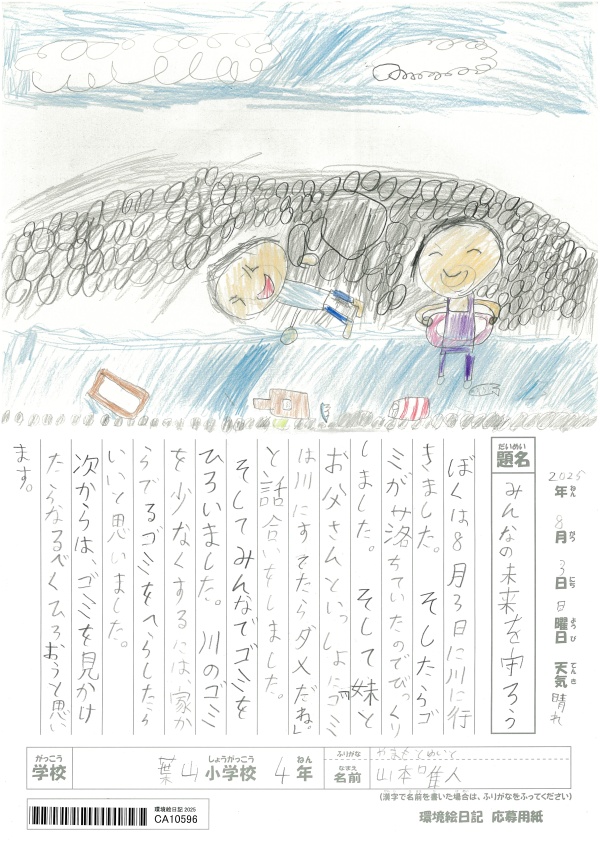 2025年ねん
8月がつ
3日にち
日曜日ようび
天気てんき 晴れ
だいめい
題名
みんなの未来を守ろう
ぼくは8月3日に川に行
きました。そしたらゴ
ミが落ちていたのでびっくり
しました。そして妹と
お父さんといっしょに「ゴミ
は川にすてたらダメだね。」
と話合いをしました。
そしてみんなでゴミを
ひろいました。川のゴミ
を少なくするには、家か
らでるゴミをへらしたら
いいと思いました。
次からは、ゴミを見かけ
たらなるべくひろおうと思い
ます。
がっこう
学校
葉山小学校しょうがっこう 4年ねん
ふりがな
やまもと
なまえ
名前
山本隼人
(漢字で名前を書いた場合は、ふりがなをふってください)
環境絵日記 2025
CA10596
環境絵日記 応募用紙